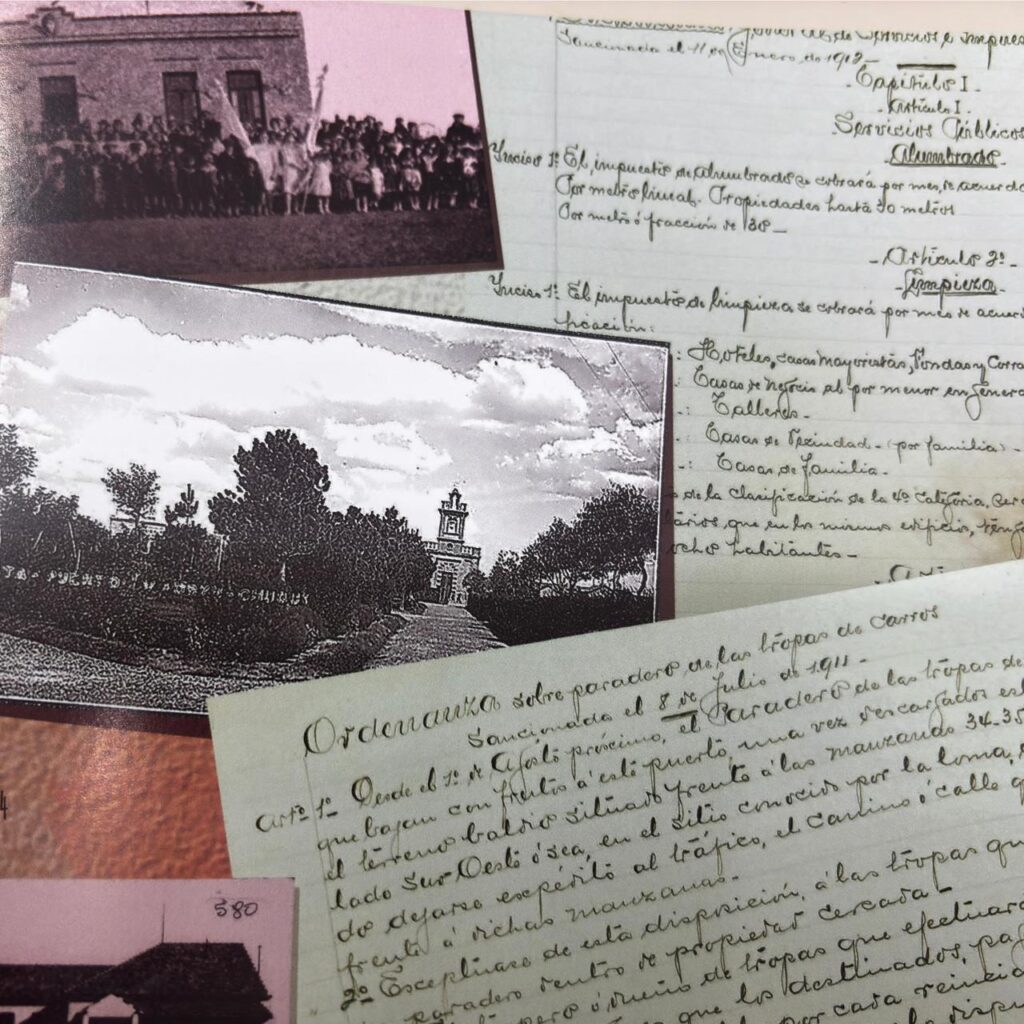 Servicios é Impues
Sancionada el 11 de Enero de 1912
- Capítulo I -
- Artículo I -
Servicios Públicos
- Alumbrado -
Inciso 1º El impuesto de alumbrado se cobrará por mes, de acuerdo
Por metro lineal. Propiedades hasta 30 metros
Por metro ó fracción de
- Artículo 2º -
- Limpieza -
Inciso 1º El impuesto de limpieza se cobrará por mes de acuer
ficación:
: Hoteles, casas mayoristas, Fondas y Corra
: Casas de negocio al por menor en genera
: Talleres -
: Casas de Vecindad - (por familia) -
: Casas de familia -
de la clasificación de la 4ª categoría, ser
que en los mismos edificio, teng
ocho habitantes -
Ordenanza sobre paradero de las tropas de carros
Sancionada el 8 de Julio de 1911 -
Artº 1º Desde el 1º de Agosto próximo, el Paradero de las tropas de
que bajan con frutos á este puerto, una vez descargados
el terreno baldío situado frente á las manzanas 34-35
lado Sur-Oeste ó sea, en el sitio conocido por la loma,
do dejarse expédito al tráfico, el camino ó calle q
frente á dichas manzanas -
2º Exceptúase de esta disposición, á las tropas qu
paradero dentro de propiedad cercada -
pero ó dueño de tropas que efectuara
que los destinados, pa
por cada reincid
la dispo
4
580